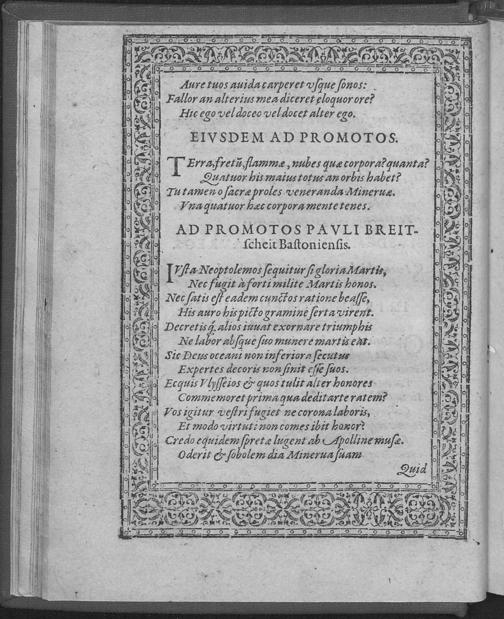 Aure tuos auida carperet vſque ſonos:
Fallor an alterius mea diceret eloquor ore?
Hic ego vel doceo vel docet alter ego.
EIVSDEM AD PROMOTOS.
Terra, fretũ, flammæ, nubes quæ corpora? quanta?
Quatuor his maius totus an orbis habet?
Tu tamen o ſacræ proles veneranda Mineruæ.
Vna quatuor hæc corpora mente tenes.
AD PROMOTOS PAVLI BREIT-
ſcheit Baſtonienſis.
IVſta Neoptolemos ſequitur ſi gloria Martis,
Nec fugit à forti milite Martis honos.
Nec ſatis eſt eadem cunctos ratione beaſſe,
His auro his picto gramine ſerta virent.
Decretis q́; alios iuuat exornare triumphis
Ne labor abſque ſuo munere martis eat.
Sic Deus oceani non inferiora ſecutus
Expertes decoris non ſinit eſſe ſuos.
Ecquis Vlyſſeios & quos tulit alter honores
Commemoret prima qua dedit arte ratem?
Vos igitur veſtri fugiet ne corona laboris,
Et modo virtuti non comes ibit honor?
Credo equidem ſpretæ lugent ab Apolline muſæ.
Oderit & ſobolem dia Minerua ſuam
Quid